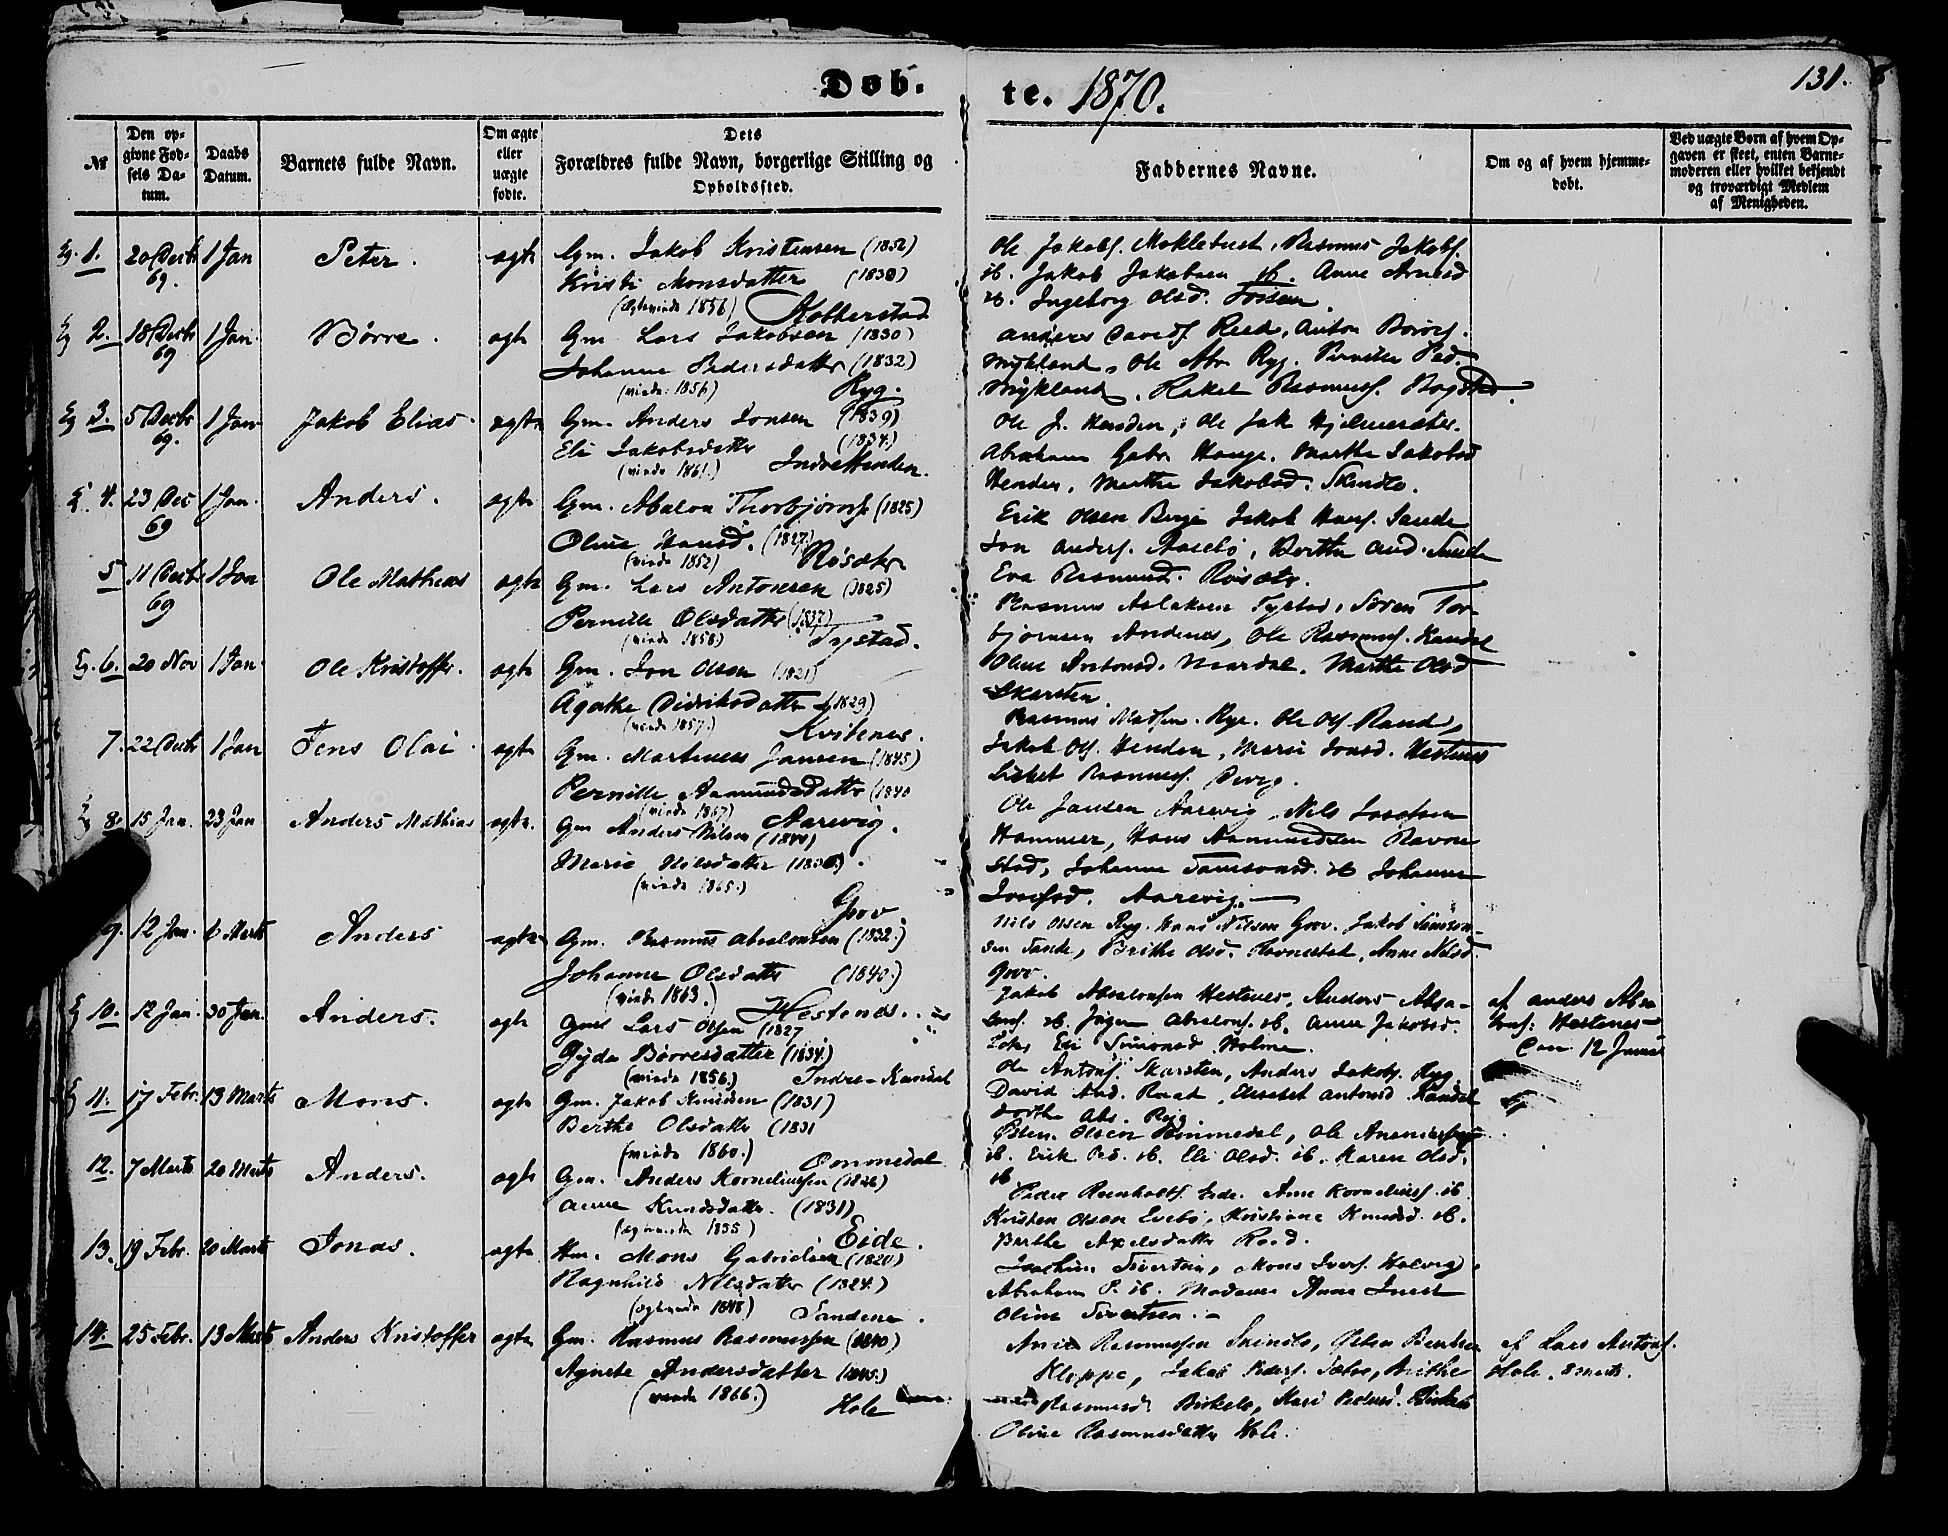 Døb.
te. 1870.
131.
№
Den opgivne Fødsels Datum.
Daabs Datum.
Barnets fulde Navn.
Om ægte eller uægte fødte.
Dets Forældres fulde Navn, borgerlige Stilling og Opholdssted.
Faddernes Navne.
Om og af hvem hjemmedøbt.
Ved uægte Børn af hvem Opgaven er skeet, enten Barnemoderen eller hvilket bekjendt og troværdigt Medlem af Menigheden.
1. 20 Decb 69. 1 Jan Peter. ægte Gm. Jakob Kristensen (1852)
Kristi Monsdatter (1830)
Ole Jakobs. Myklebust, Rasmus Jakobs.
ib. Jakob Jakobsen ib. Anne
ib. Ingeborg Olsd. Fossen
2. 18 Decb 69 1 Jan. Børre. ægte Gm Lars Jakobsen (1830)
Johanne Pedersdatter (1832)
(viede 1856) Ryg.
Anders Davids. Reed, Anton
Mykland, Ole Abr. Ryg. Pernille
Mykland, Rakel Rasmuss.
3. 5 Decbr 69. 1 Jan Jakob Elias. ægte Gm. Anders Jonsen (1839)
Eli Jakobsdatter (1834.)
(viede 1861.) Indre Henden.
Ole J. Henden, Ole Jak
Abraham Gabr. Hauge. Marthe Jakobsd
Henden, Marthe Jakobsd.
4. 23 Dec 69 1 Jan. Anders. ægte Gm. Absalon Thorbjørns (1825)
Oline Hansd. (1827)
(viede 1852) Røsæter
Erik Olsen Berge Jakob Hans. Sande
Jon Anders. Aasebø, Berthe And. Sande
Eva Rasmusd. Røsætr.
5 11 Decb 69 1 Jan Ole Mathias ægte Gm. Lars Antonsen (1825)
Pernille Olsdatter (1837)
(viede 1858) Tystad.
Rasmus Aslaksen Tystad, Søren Torbjørnsen
Andenes, Ole Rasmuss. Kandal
Oline Antonsd. Mardal. Marthe Olsd
Skarsten
6. 20 Nov 1 Jan Ole Kristoffer. ægte Gm. Jon Olsen (1821)
Agathe Didriksdatter (1829)
(viede 1857.) Kvitenes.
Rasmus Madsen. Rye. Ole Ols. Rand,
Jakob Ols. Henden, Marie Jonsd. Hestenes
Lisbet Rasmuss. Berg.
7. 22 Decb 1 Jan Jens Olai ægte Gm. Martinus Jansen (1845)
Pernille Aamundsdatter (1840
(viede 1867) Aarevig.
Ole Jansen Aarevig, Nils Josefsen
Hammer, Hans Aamundsen Ravnestad,
Johanne ib Johanne
Josefsd. Aarevig.
8. 15 Jan. 23 Jan Anders Mathias ægte. Gm Anders Nilsen (1840)
Marie Nilsdatter
(viede 1865.) Gjov
Nils Olsen Ryg. Hans Nilsen Gjov. Jakob Simonsen
Sande, Brithe Olsd. Ravnestad, Anne Nilsd.
Gjov.
9. 12 Jan. 6 Marts Anders ægte Gm. Rasmus Absalonsen (1832.)
Johanne Olsdatter (1840.)
(viede 1863.) Hestenes.
Jakob Absalonsen Hestenes, Anders Absalons.
ib. Jørgen Absalons. ib. Anne Jakobsd.
Eli Simonsd Holme.
af Anders Absalons:
Hestenes
den 12 Januar
10. 12 Jan. 30 Jan. Anders. ægte Gm Lars Olsen (1827
Gyda Børresdatter (1834.)
(viede 1856.) Indre-Kandal
Ole Antons. Skarsten, Anders Jakobs. Ryg.
David And. Reed, Elisabet Antonsd Kandal
Dorthe Abs. Ryg
11. 17 Febr. 13 Marts Mons. ægte Gm. Jakob Knudsen (1831)
Berthe Olsdatter (1831
(viede 1860.) Ommedal
Østen Olsen Ommedal, Ole
ib. Erik Ped. ib. Eli Olsd. ib. Karen Olsd.
ib
12. 7 Marts 20 Marts Anders. ægte Gm. Anders Korneliussen
Anne Knudsdatter. (1831)
(ægteviede 1855) Eide.
Peder Reinholts. Eide. Anne Korneliusd. ib
Kristen Olsen Evebø, Kristiane Knudsd. ib.
Berthe Axelsdatter Reed.
13. 19 Febr. 20 Marts Jonas. ægte Hm. Mons Gabrielsen (1820)
Ragnhild Nilsdatter (1824.)
(ægteviede 1848) Sandene.
Joachim Sivertsen, Mons Ivers. Holvig,
Abraham P. ib. Madame Anne
Oline Sivertsen.
14. 25 Febr. 13 Marts Anders Kristoffer ægte Gm. Rasmus Rasmussen (1840)
Agnete Andersdatter (1845.)
(viede 1866.) Hole
Rasmussen Skinlo, Østen Bentsen
Kleppe, Jakob Peders. Sætre, Brithe
Rasmusd. Birkelo, Kari Pedersd. Birkelo
Oline Rasmusdatter Hole.
af Lars Antons.
Hole. 8 Marts.